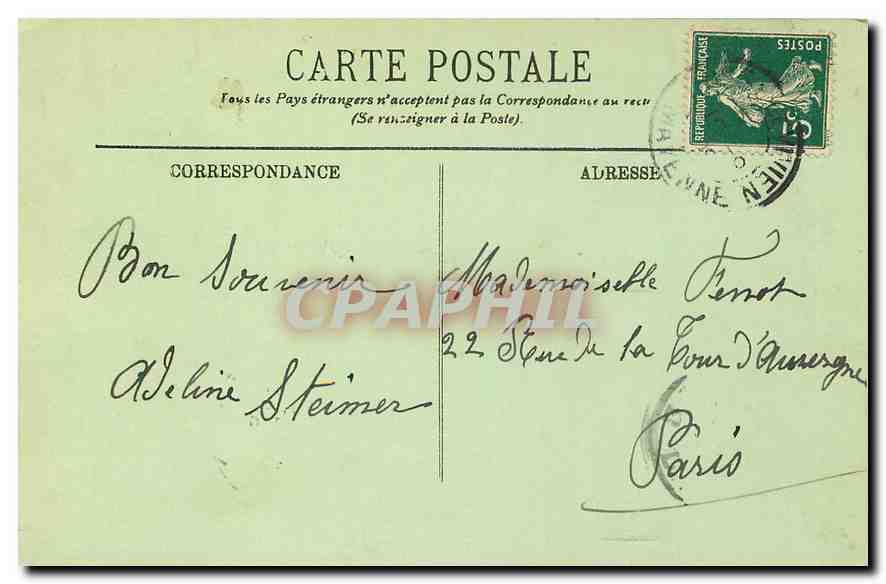 CARTE POSTALE
Tous les Pays étrangers n'acceptent pas la Correspondance au recto
(Se renseigner à la Poste).
CORRESPONDANCE
ADRESSE
REPUBLIQUE FRANÇAISE
POSTES
5c
MAYENNE
Bon Souvenir
Adeline Steimer
Mademoiselle
22 Rue de la Tour d'Auvergne
Paris
CPAPHIL